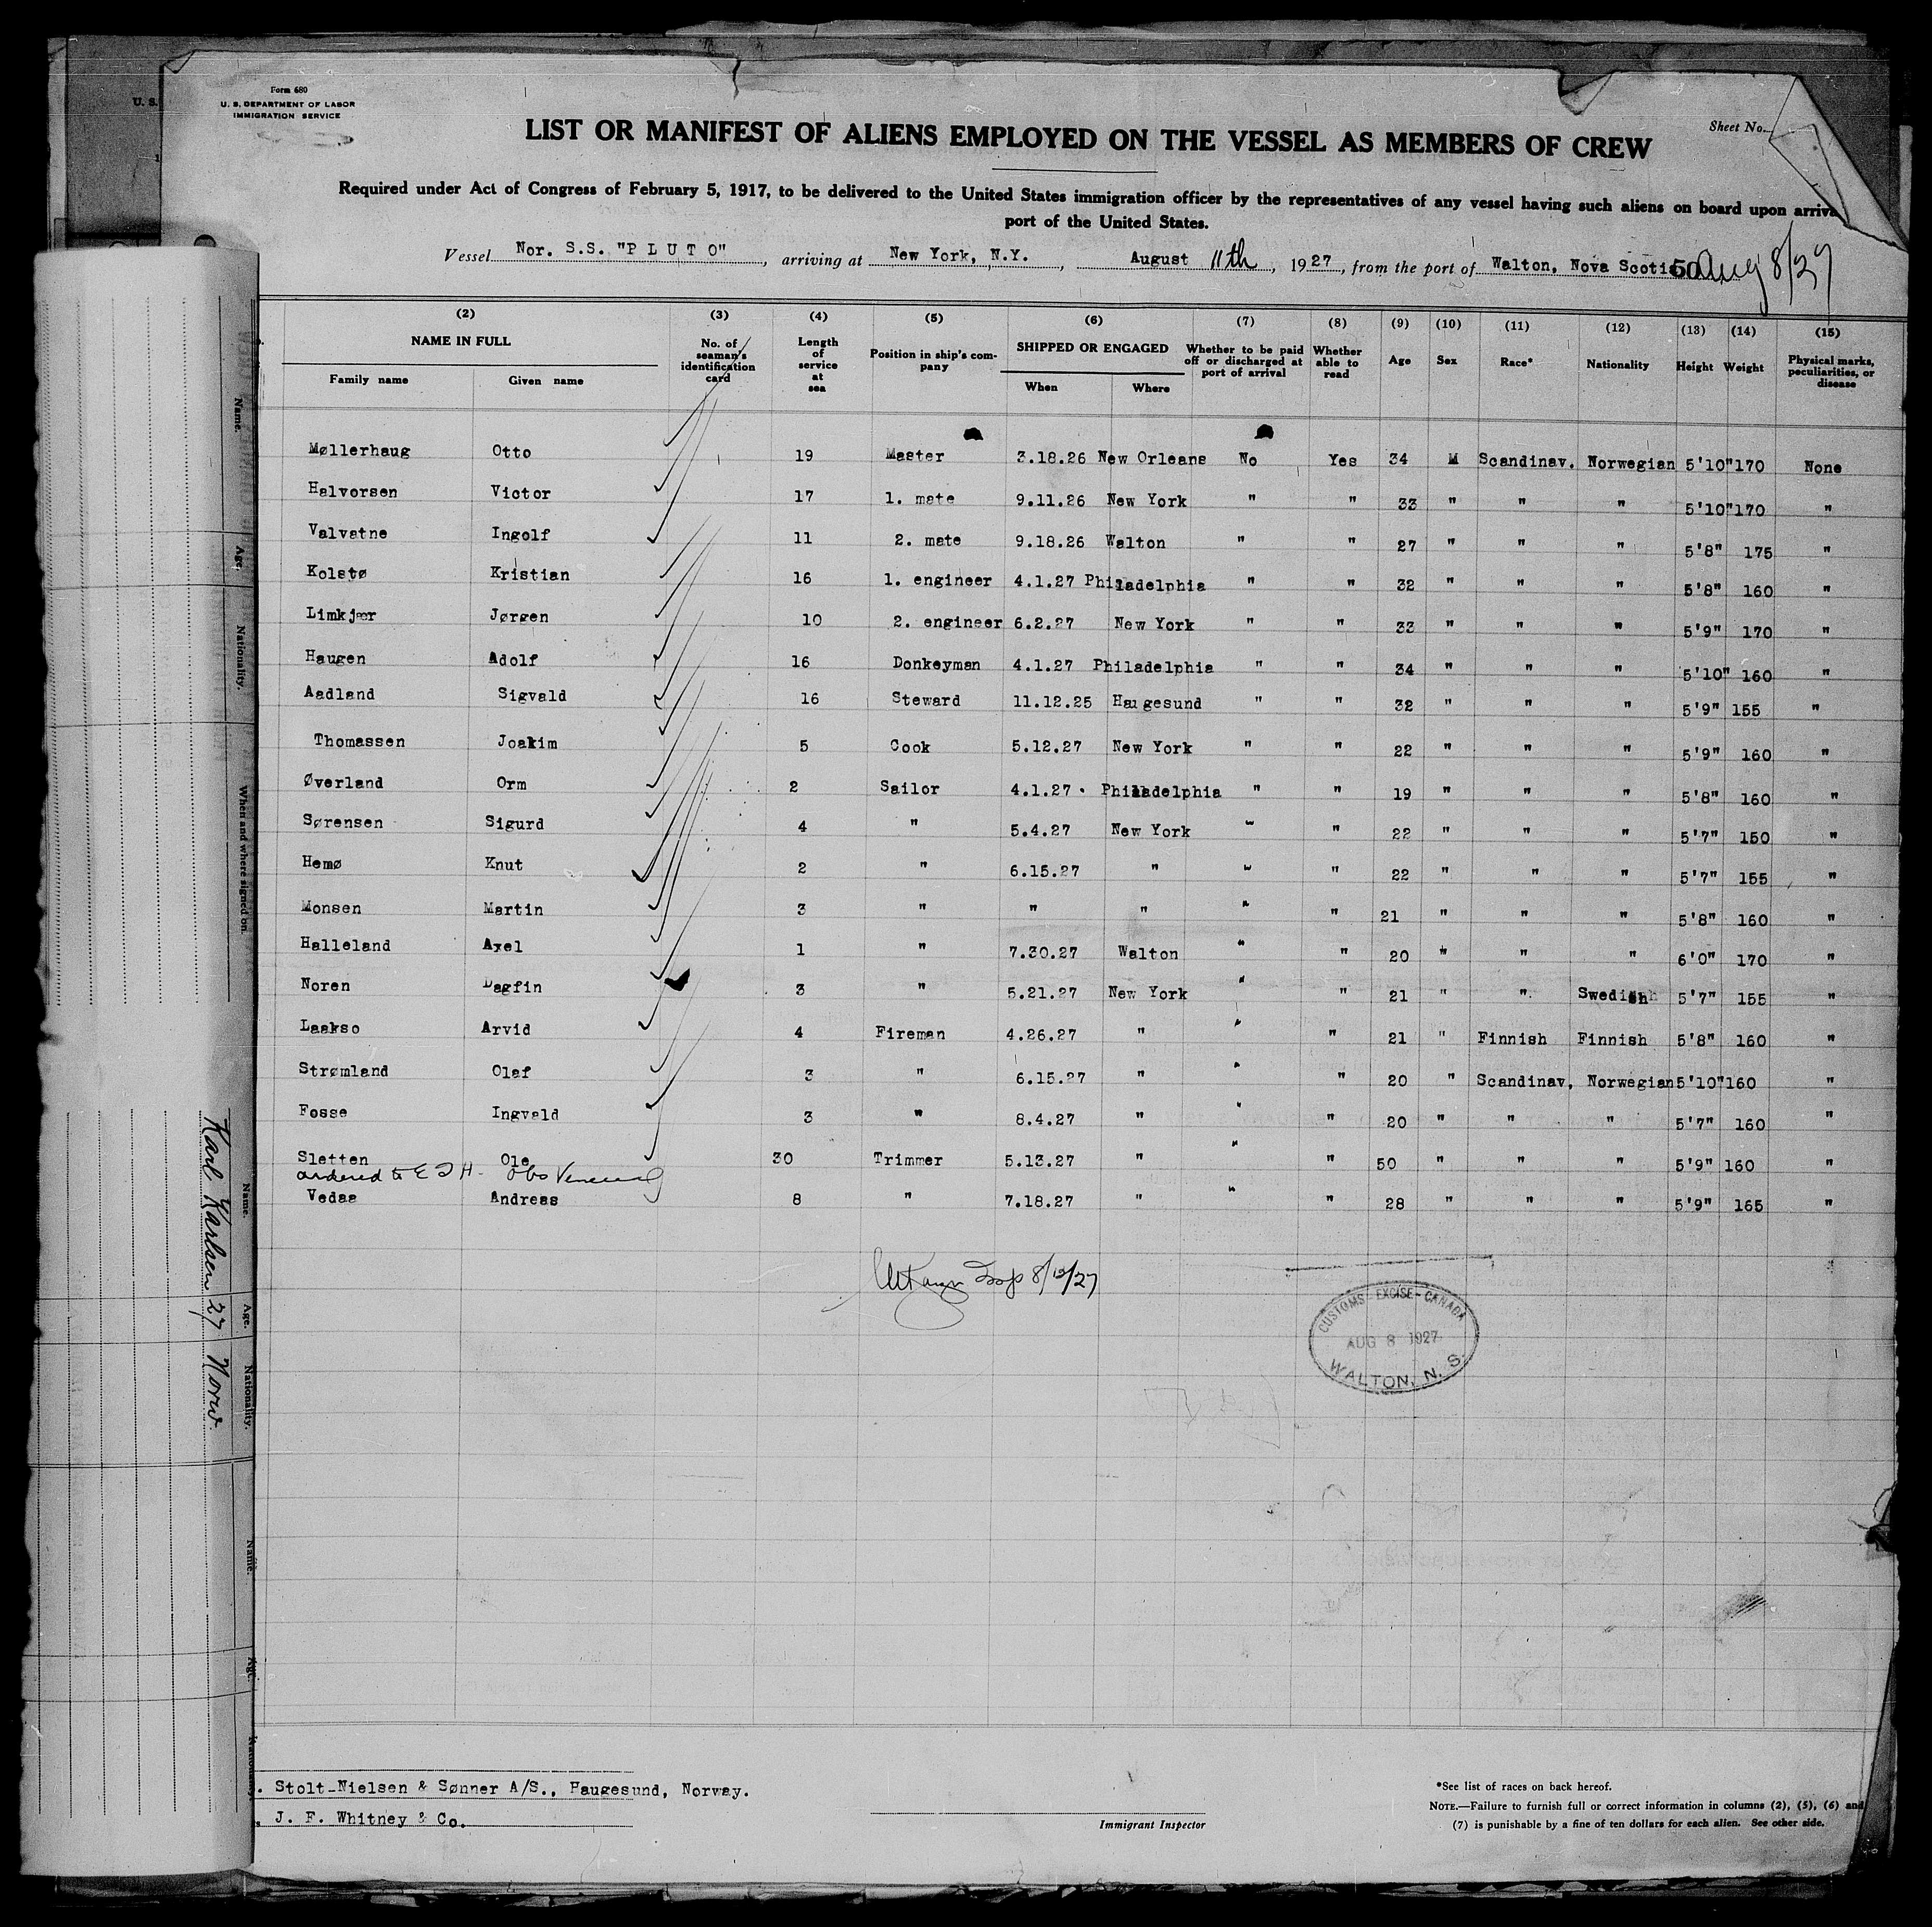 Form 680
U. S. DEPARTMENT OF LABOR
IMMIGRATION SERVICE
U. S.
Sheet No.
LIST OR MANIFEST OF ALIENS EMPLOYED ON THE VESSEL AS MEMBERS OF CREW
Required under Act of Congress of February 5, 1917, to be delivered to the United States immigration officer by the representatives of any vessel having such aliens on board upon arriva
port of the United States.
Vessel Nor. S.S. "P L U T O", arriving at New York, N.Y., August 11th, 1927, from the port of Walton, Nova Scotia 50 Aug 8/27
(2) (3) (4) (5) (6) (7) (8) (9) (10) (11) (12) (13) (14) (15)
NAME IN FULL No. of seaman's identification card Length of service at sea Position in ship's company SHIPPED OR ENGAGED Whether to be paid off or discharged at port of arrival Whether able to read Age Sex Race* Nationality Height Weight Physical marks, peculiarities, or disease
Family name Given name When Where
Møllerhaug Otto 19 Master 3.18.26 New Orleans No Yes 34 M Scandinav. Norwegian 5'10" 170 None
Halvorsen Victor 17 1. mate 9.11.26 New York " " 33 " " " 5'10" 170 "
Valvatne Ingolf 11 2. mate 9.18.26 Walton " " 27 " " " 5'8" 175 "
Kolstø Kristian 16 1. engineer 4.1.27 Philadelphia " " 32 " " " 5'8" 160 "
Limkjær Jørgen 10 2. engineer 6.2.27 New York " " 33 " " " 5'9" 170 "
Haugen Adolf 16 Donkeyman 4.1.27 Philadelphia " " 34 " " " 5'10" 160 "
Aadland Sigvald 16 Steward 11.12.25 Haugesund " " 32 " " " 5'9" 155 "
Thomassen Joakim 5 Cook 5.12.27 New York " " 22 " " " 5'9" 160 "
Øverland Orm 2 Sailor 4.1.27. Philadelphia " " 19 " " " 5'8" 160 "
Sørensen Sigurd 4 " 5.4.27 New York " " 22 " " " 5'7" 150 "
Hemø Knut 2 " 6.15.27 " " " 22 " " " 5'7" 155 "
Monsen Martin 3 " " " " " 21 " " " 5'8" 160 "
Halleland Axel 1 " 7.30.27 Walton " " 20 " " " 6'0" 170 "
Noren Dagfin 3 " 5.21.27 New York " " 21 " " Swedish 5'7" 155 "
Laakso Arvid 4 Fireman 4.26.27 " " " 21 " Finnish Finnish 5'8" 160 "
Strømland Olaf 3 " 6.15.27 " " " 20 " Scandinav, Norwegian 5'10" 160 "
Fosse Ingvald 3 " 8.4.27 " " " 20 " " " 5'7" 160 "
Sletten Ole 30 Trimmer 5.13.27 " " " 50 " " " 5'9" 160 "
ordered to E I H - obs Venereal
Vedaa Andreas 8 " 7.18.27 " " " 28 " " " 5'9" 165 "
8/12/27
CUSTOMS - EXCISE - CANADA
AUG 8 1927
WALTON, N. S.
. Stolt-Nielsen & Sønner A/S., Haugesund, Norway.
. J. F. Whitney & Co.
Immigrant Inspector
*See list of races on back hereof.
NOTE.—Failure to furnish full or correct information in columns (2), (5), (6) and
(7) is punishable by a fine of ten dollars for each alien. See other side.
Name.
Age.
Nationality.
When and where signed on.
Name.
Age.
Nationality.
Name.
Age.
Nationality.
Karl Karlsen 27 Norw.